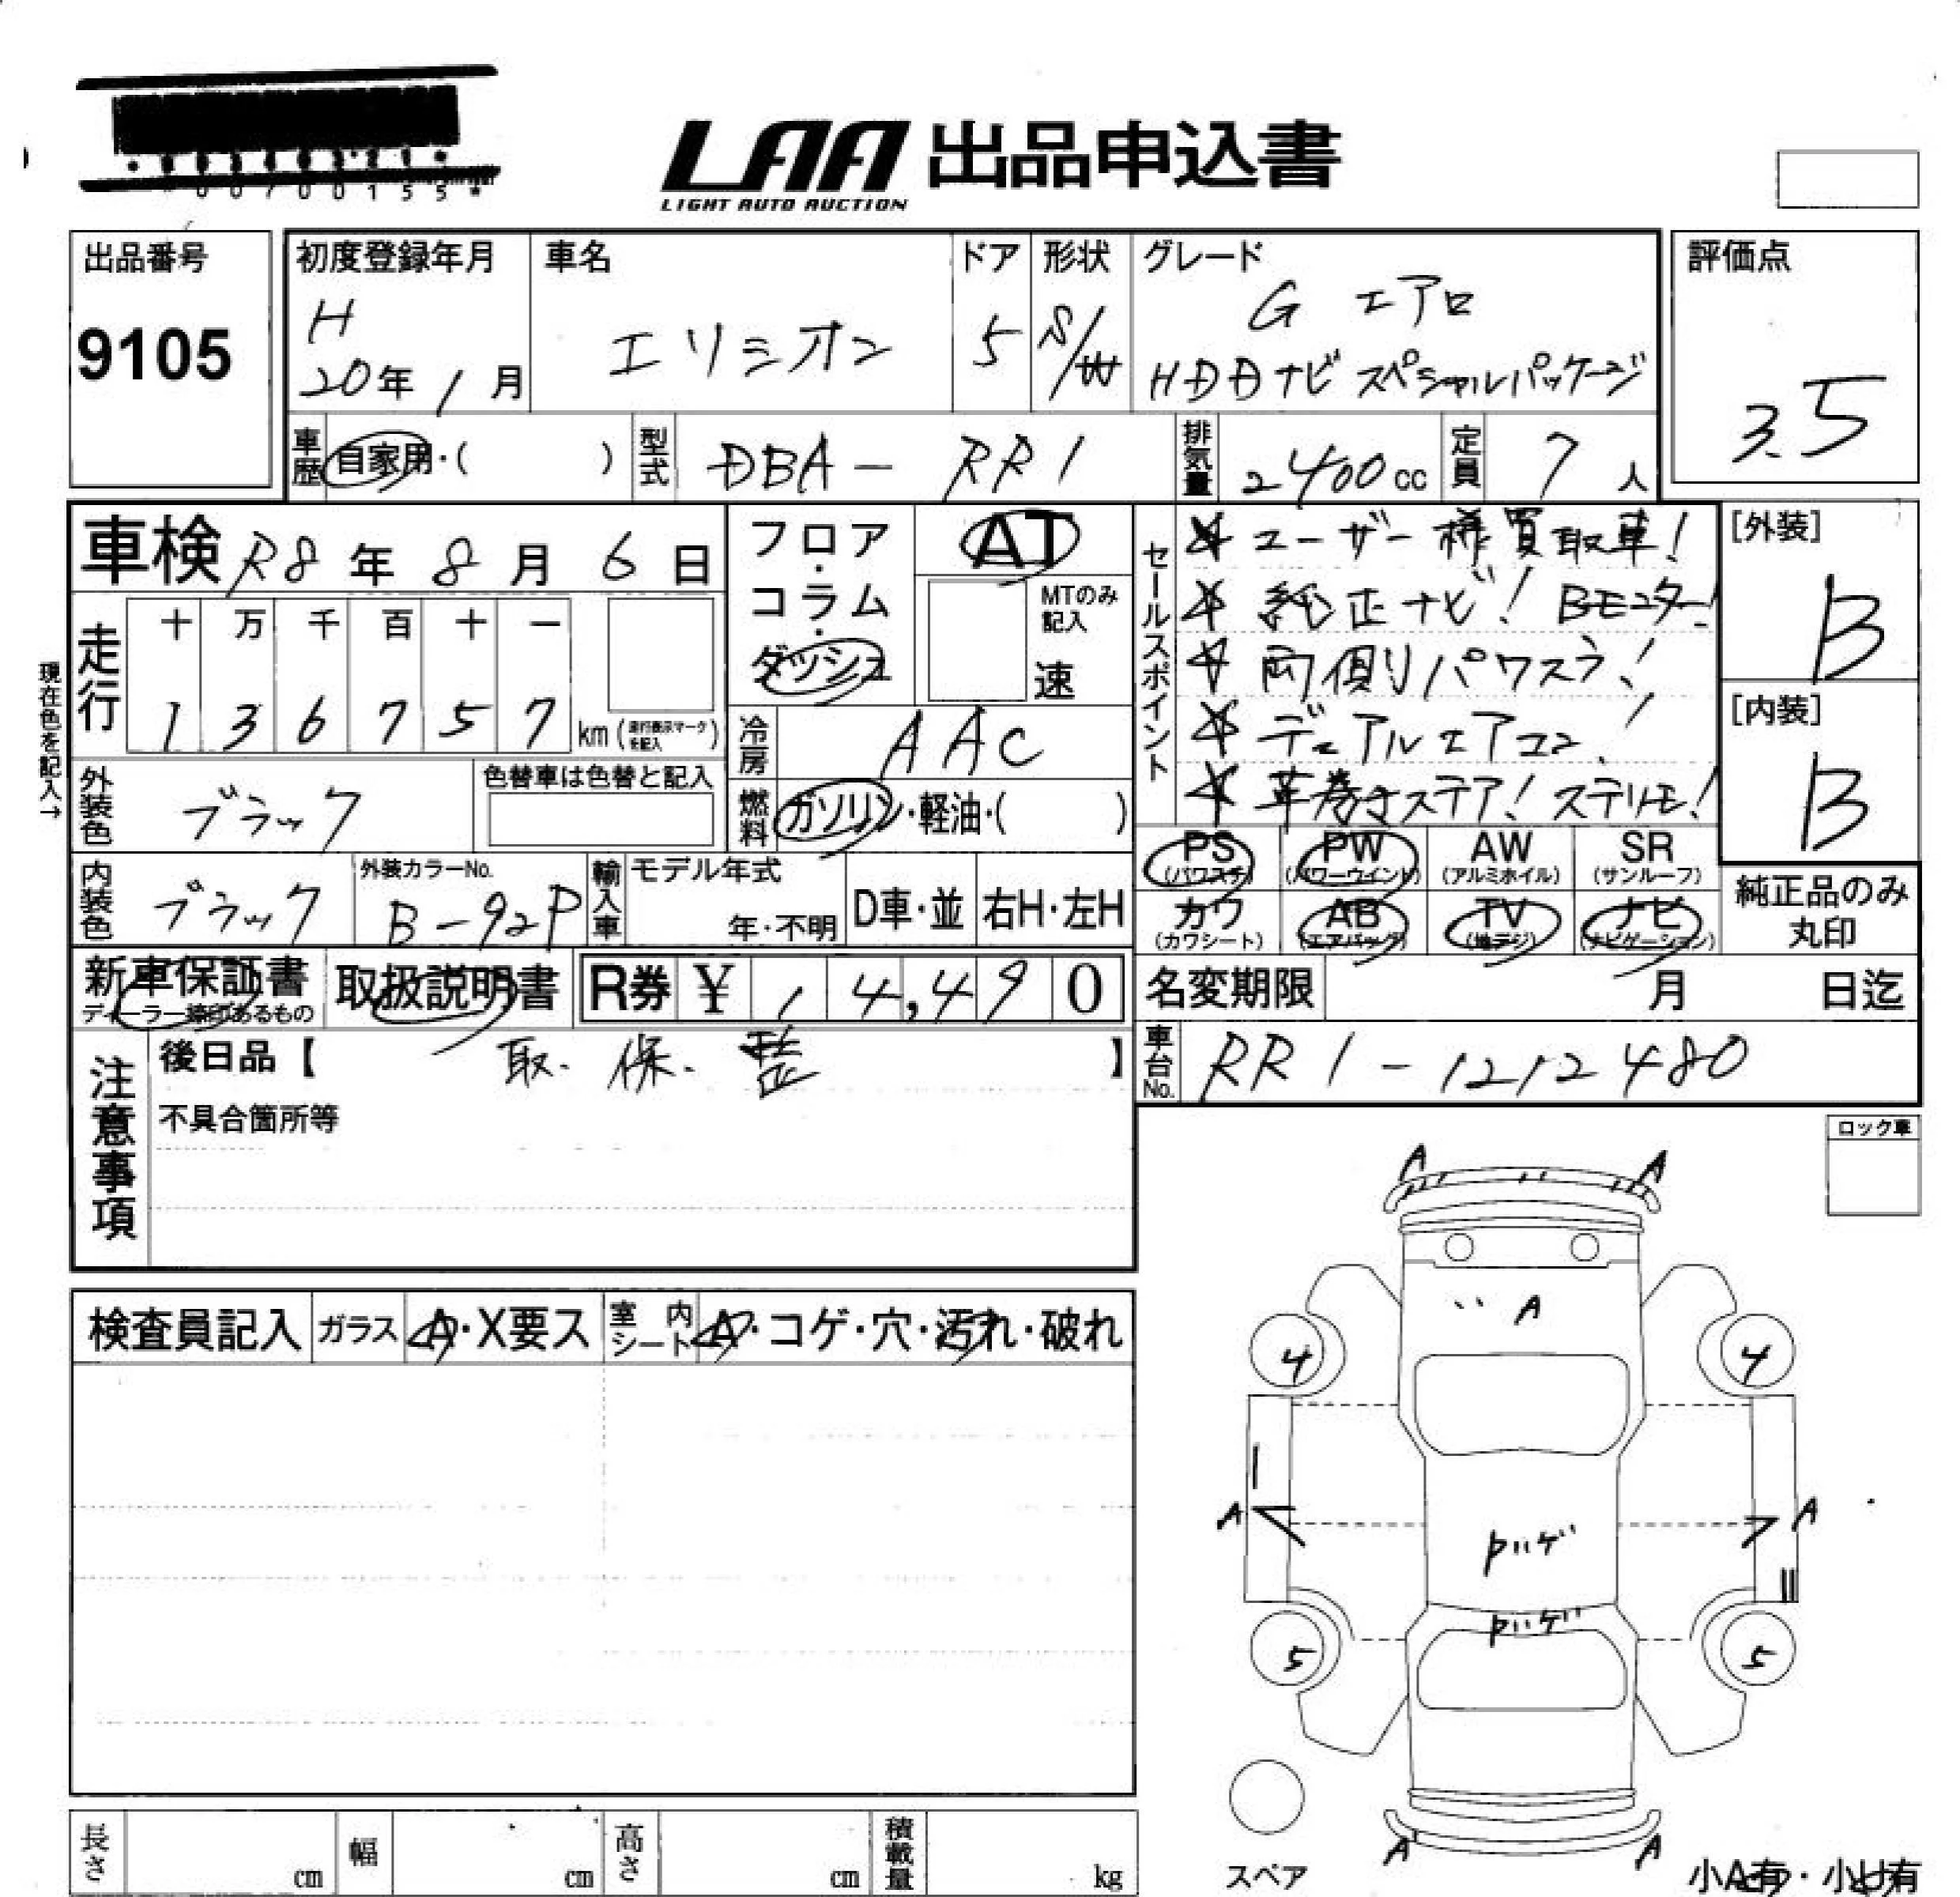 00700155
LAA 出品申込書
LIGHT AUTO AUCTION
出品番号
9105
初度登録年月
H
20年1月
車名
エリシオン
ドア
5
形状
S/W
グレード
G エアロ
HDDナビ スペシャルパッケージ
評価点
3.5
車歴
自家用・( )
型式
DBA-RR1
排気量
2400cc
定員
7人
車検 R8年8月6日
フロア・コラム・ダッシュ
AT
MTのみ記入
速
セールスポイント
☆ユーザー様買取車!
☆純正ナビ! Bモニター!
☆両側パワスラ!
☆デュアルエアコン!
☆革巻きステア! ステリモ!
[外装]
B
[内装]
B
現在色を記入→
走行
十 万 千 百 十 一
1 3 6 7 5 7 km (走行表示マークを記入)
冷房
AAC
外装色
ブラック
色替車は色替と記入
燃料
ガソリン・軽油・( )
内装色
ブラック
外装カラーNo.
B-92P
輸入車
モデル年式
年・不明
D車・並
右H・左H
PS
(パワステ)
PW
(パワーウインド)
AW
(アルミホイル)
SR
(サンルーフ)
カワ
(カワシート)
AB
(エアバッグ)
TV
(地デジ)
ナビ
(ナビゲーション)
純正品のみ
丸印
新車保証書
ディーラー捺印あるもの
取扱説明書
R券 ¥ 14,490
名変期限
月 日迄
車台No.
RR1-1212480
注意事項
後日品【 取.保. 】
不具合箇所等
ロック車
検査員記入
ガラス
A・X要ス
室内シート
A・コゲ・穴・汚れ・破れ
A A
A
4 4
A A
ハゲ
ハゲ
5 5
A A
スペア
小A有・小U有
長さ
cm
幅
cm
高さ
cm
積載量
kg